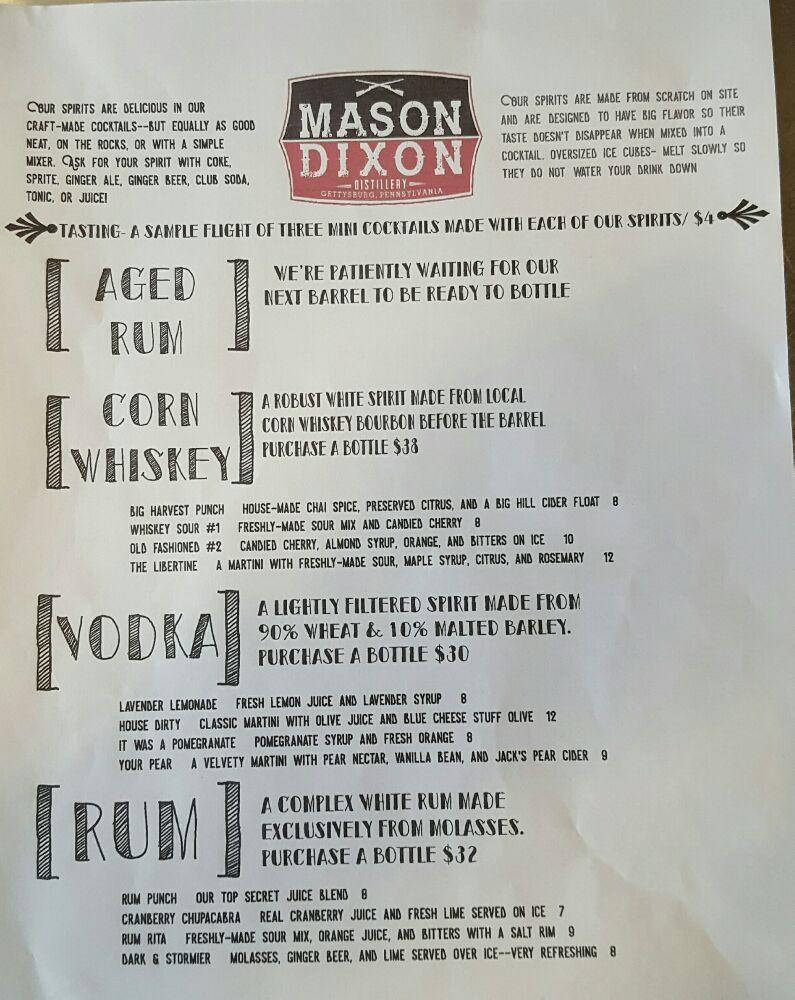 OUR SPIRITS ARE DELICIOUS IN OUR
CRAFT-MADE COCKTAILS--BUT EQUALLY AS GOOD
NEAT, ON THE ROCKS, OR WITH A SIMPLE
MIXER. ASK FOR YOUR SPIRIT WITH COKE,
SPRITE, GINGER ALE, GINGER BEER, CLUB SODA,
TONIC, OR JUICE!
MASON
DIXON
DISTILLERY
GETTYSBURG, PENNSYLVANIA
OUR SPIRITS ARE MADE FROM SCRATCH ON SITE
AND ARE DESIGNED TO HAVE BIG FLAVOR SO THEIR
TASTE DOESN'T DISAPPEAR WHEN MIXED INTO A
COCKTAIL. OVERSIZED ICE CUBES- MELT SLOWLY SO
THEY DO NOT WATER YOUR DRINK DOWN
TASTING- A SAMPLE FLIGHT OF THREE MINI COCKTAILS MADE WITH EACH OF OUR SPIRITS/ $4
[AGED
RUM]
WE'RE PATIENTLY WAITING FOR OUR
NEXT BARREL TO BE READY TO BOTTLE
[CORN
WHISKEY]
A ROBUST WHITE SPIRIT MADE FROM LOCAL
CORN WHISKEY BOURBON BEFORE THE BARREL
PURCHASE A BOTTLE $38
BIG HARVEST PUNCH HOUSE-MADE CHAI SPICE, PRESERVED CITRUS, AND A BIG HILL CIDER FLOAT 8
WHISKEY SOUR #1 FRESHLY-MADE SOUR MIX AND CANDIED CHERRY 8
OLD FASHIONED #2 CANDIED CHERRY, ALMOND SYRUP, ORANGE, AND BITTERS ON ICE 10
THE LIBERTINE A MARTINI WITH FRESHLY-MADE SOUR, MAPLE SYRUP, CITRUS, AND ROSEMARY 12
[VODKA]
A LIGHTLY FILTERED SPIRIT MADE FROM
90% WHEAT & 10% MALTED BARLEY.
PURCHASE A BOTTLE $30
LAVENDER LEMONADE FRESH LEMON JUICE AND LAVENDER SYRUP 8
HOUSE DIRTY CLASSIC MARTINI WITH OLIVE JUICE AND BLUE CHEESE STUFF OLIVE 12
IT WAS A POMEGRANATE POMEGRANATE SYRUP AND FRESH ORANGE 8
YOUR PEAR A VELVETY MARTINI WITH PEAR NECTAR, VANILLA BEAN, AND JACK'S PEAR CIDER 9
[RUM]
A COMPLEX WHITE RUM MADE
EXCLUSIVELY FROM MOLASSES.
PURCHASE A BOTTLE $32
RUM PUNCH OUR TOP SECRET JUICE BLEND 8
CRANBERRY CHUPACABRA REAL CRANBERRY JUICE AND FRESH LIME SERVED ON ICE 7
RUM RITA FRESHLY-MADE SOUR MIX, ORANGE JUICE, AND BITTERS WITH A SALT RIM 9
DARK & STORMIER MOLASSES, GINGER BEER, AND LIME SERVED OVER ICE--VERY REFRESHING 8